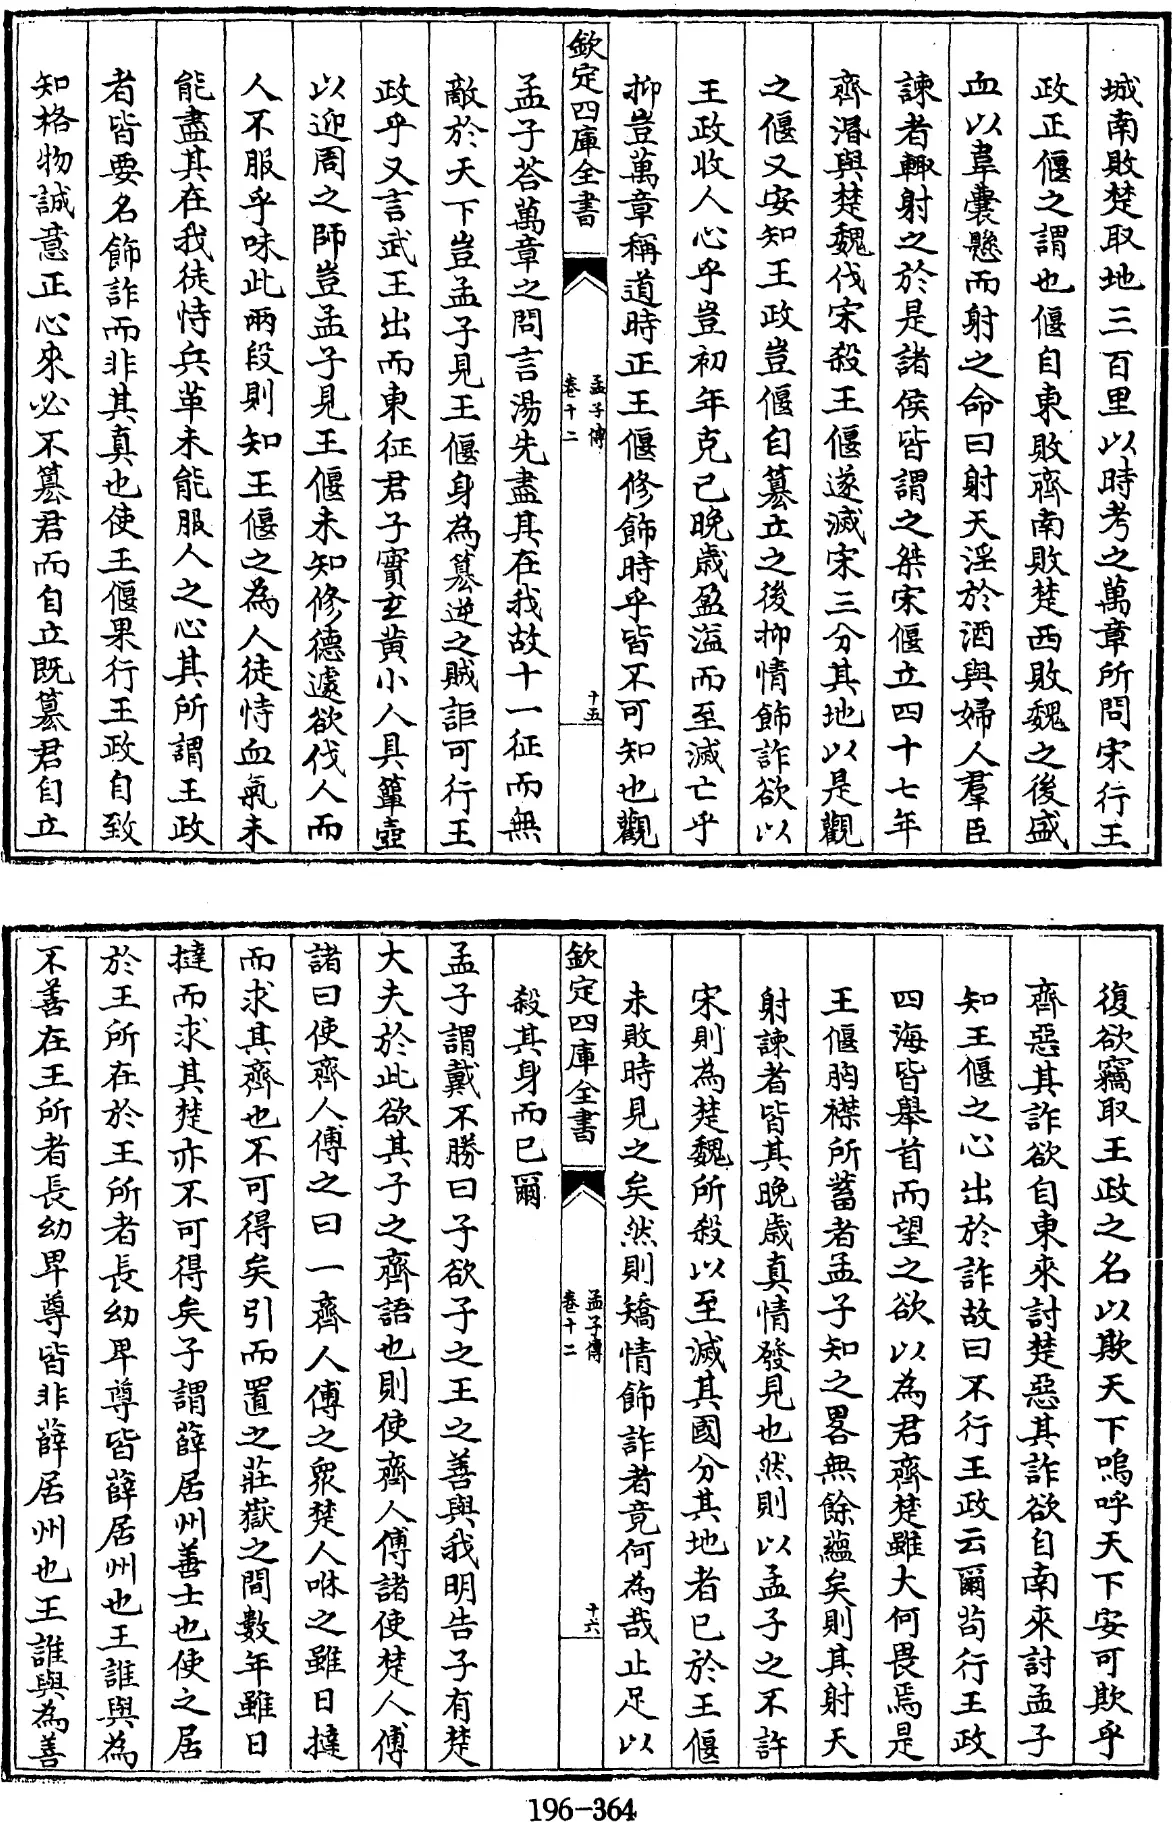 城南敗楚取地三百里以時考之萬章所問宋行王
政正偃之謂也偃自東敗齊南敗楚西敗魏之後盛
血以韋囊懸而射之命曰射天淫於酒與婦人羣臣
諫者輙射之於是諸侯皆謂之桀宋偃立四十七年
齊湣與楚魏伐宋殺王偃遂滅宋三分其地以是觀
之偃又安知王政豈偃自簒立之後抑情飾詐欲以
王政收人心乎豈初年克己晚歳盈溢而至滅亡乎
抑豈萬章稱道時正王偃修飾時乎皆不可知也觀
欽定四庫全書
孟子傳
卷十二
十五
孟子荅萬章之問言湯先盡其在我故十一征而無
敵於天下豈孟子見王偃身為簒逆之賊詎可行王
政乎又言武王出而東征君子實𤣥黄小人具簞壺
以迎周之師豈孟子見王偃未知修德遽欲伐人而
人不服乎味此兩段則知王偃之為人徒恃血氣未
能盡其在我徒恃兵革未能服人之心其所謂王政
者皆要名飾詐而非其真也使王偃果行王政自致
知格物誠意正心來必不簒君而自立既簒君自立
復欲竊取王政之名以欺天下嗚呼天下安可欺乎
齊惡其詐欲自東來討楚惡其詐欲自南來討孟子
知王偃之心出於詐故曰不行王政云爾茍行王政
四海皆舉首而望之欲以為君齊楚雖大何畏焉是
王偃胸襟所蓄者孟子知之畧無餘蘊矣則其射天
射諫者皆其晚歳真情發見也然則以孟子之不許
宋則為楚魏所殺以至滅其國分其地者已於王偃
未敗時見之矣然則矯情飾詐者竟何為哉止足以
欽定四庫全書
孟子傳
卷十二
十六
殺其身而已爾
孟子謂戴不勝曰子欲子之王之善與我明告子有楚
大夫於此欲其子之齊語也則使齊人傅諸使楚人傅
諸曰使齊人傅之曰一齊人傅之衆楚人咻之雖日撻
而求其齊也不可得矣引而置之莊嶽之間數年雖日
撻而求其楚亦不可得矣子謂薛居州善士也使之居
於王所在於王所者長幼卑尊皆薛居州也王誰與為
不善在王所者長幼卑尊皆非薛居州也王誰與為善
196-364